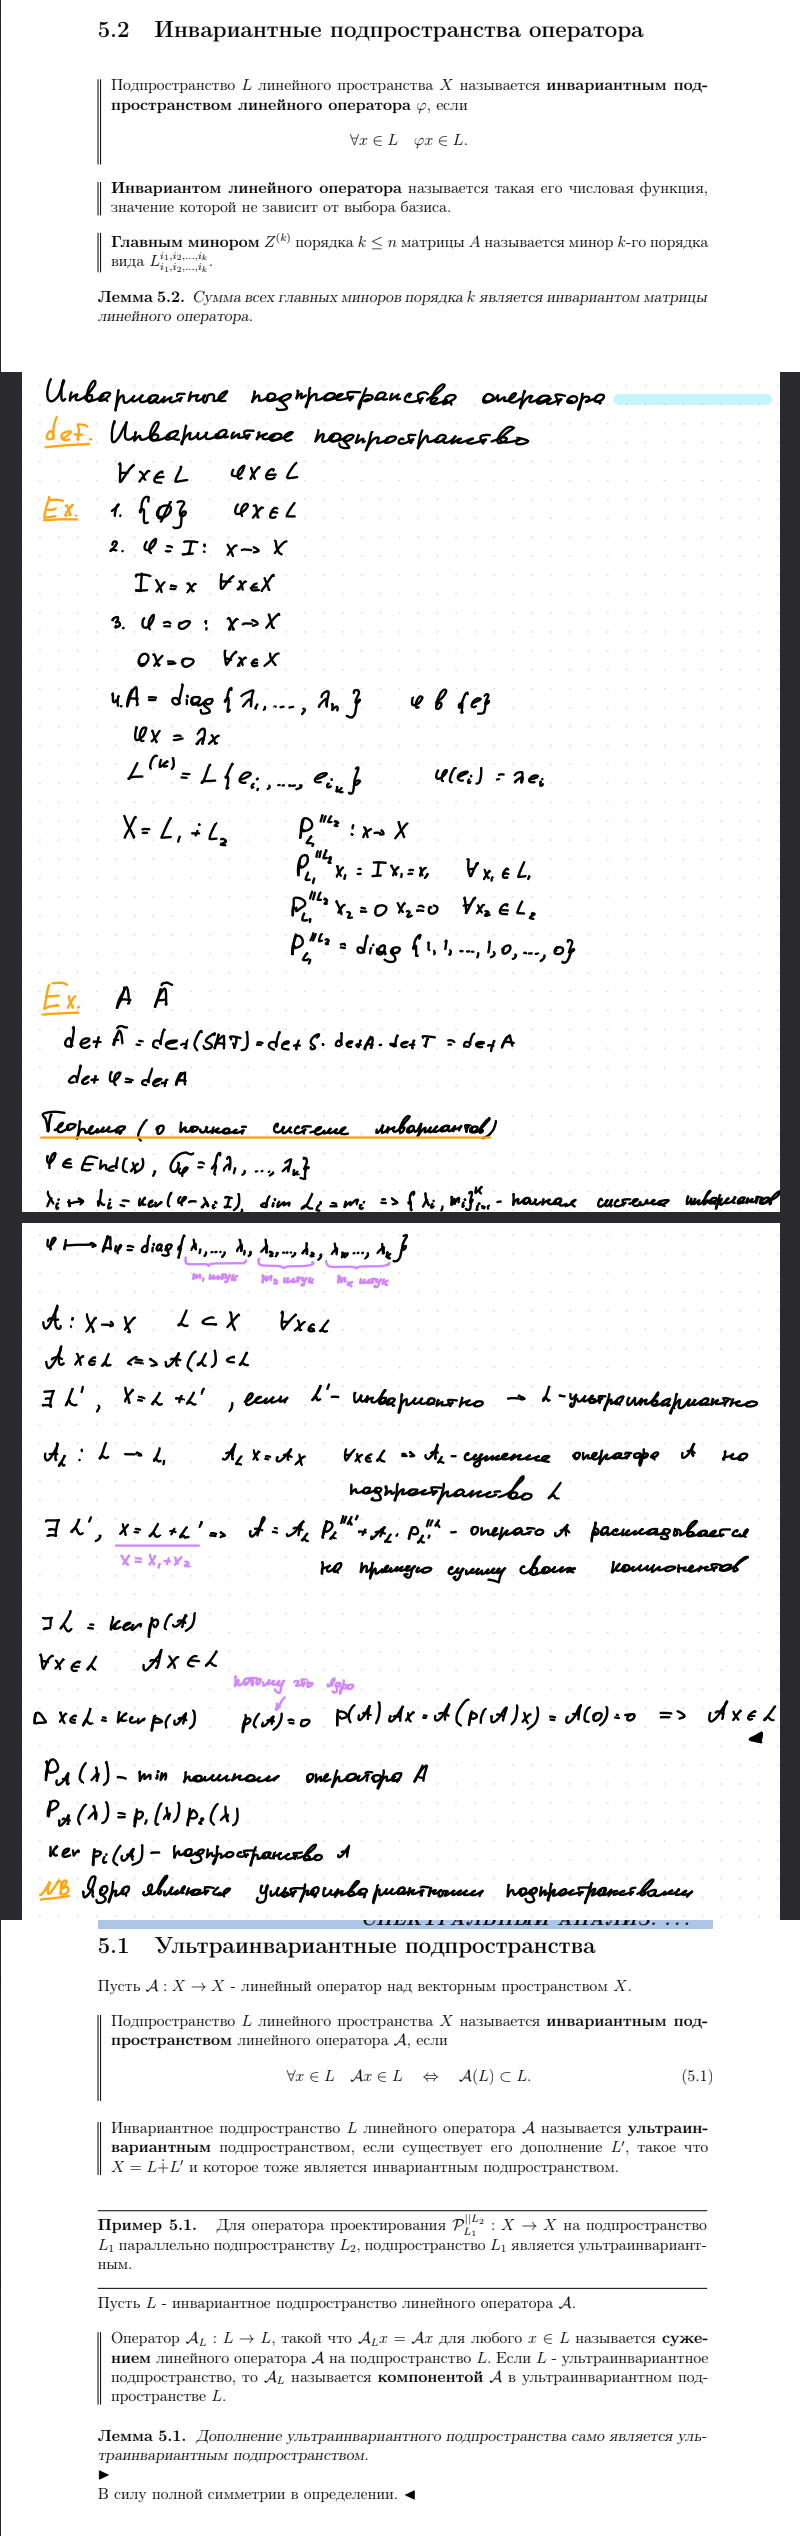 5.2 Инвариантные подпространства оператора
Подпространство L линейного пространства X называется инвариантным под-
пространством линейного оператора φ, если
∀x ∈ L φx ∈ L.
Инвариантом линейного оператора называется такая его числовая функция,
значение которой не зависит от выбора базиса.
Главным минором Z^(k) порядка k ≤ n матрицы A называется минор k-го порядка
вида L^{i₁,i₂,...,iₖ}_{i₁,i₂,...,iₖ}.
Лемма 5.2. Сумма всех главных миноров порядка k является инвариантом матрицы
линейного оператора.
Инвариантные подпространства оператора
def. Инвариантное подпространство
∀x∈L φx∈L
Ex. 1. {∅} φx∈L
2. φ = I : x→X
Ix = x ∀x∈X
3. φ = 0 : x→X
0x=0 ∀x∈X
4. A = diag{λ₁,...,λₙ} φ в {e}
φx = λx
L^(k) = L{e_{i₁},...,e_{iₖ}} φ(eᵢ) = λeᵢ
X = L₁ ∔ L₂ P_{L₁}^{||L₂} : x→X
P_{L₁}^{||L₂} x₁ = Ix₁ = x₁ ∀x₁∈L₁
P_{L₁}^{||L₂} x₂ = 0 x₂=0 ∀x₂∈L₂
P_{L₁}^{||L₂} = diag{1,1,...,1,0,...,0}
Ex. A Ã
det Ã = det(SAT) = det S · det A · det T = det A
det φ = det A
Теорема (о полной системе инвариантов)
φ ∈ End(x), σ_φ = {λ₁,...,λₖ}
λᵢ ↦ Lᵢ = ker(φ-λᵢI), dim Lᵢ = mᵢ => {λᵢ, mᵢ}ᵏᵢ₌₁ - полная система инвариантов
φ ⟼ A_φ = diag{λ₁,..., λ₁, λ₂,..., λ₂, λₖ,..., λₖ}
m₁ штук m₂ штук mₖ штук
𝒜 : X→X L ⊂ X ∀x∈L
𝒜x∈L <=> 𝒜(L)⊂L
∃ L', X = L+L', если L'- инвариантно → L-ультраинвариантно
𝒜_L : L → L, 𝒜_L x = 𝒜x ∀x∈L => 𝒜_L - сужение оператора 𝒜 на
подпространство L
∃ L', X = L+L' => 𝒜 = 𝒜_L P_L^{||L'} + 𝒜_{L'} P_{L'}^{||L} - операто 𝒜 раскладывается
x = x₁+x₂ на прямую сумму своих компонентов
∃ L = ker p(𝒜)
∀x∈L 𝒜x∈L
потому что ядро
▷ x∈L = ker p(𝒜) p(𝒜)=0 p(𝒜)𝒜x = 𝒜(p(𝒜)x) = 𝒜(0)=0 => 𝒜x∈L
◀
P_𝒜(λ) - min полином оператора A
P_𝒜(λ) = p₁(λ)p₂(λ)
ker pᵢ(𝒜) - подпространство 𝒜
NB Ядра являются ультраинвариантными подпространствами
СПЕКТРАЛЬНЫЙ АНАЛИЗ. ...
5.1 Ультраинвариантные подпространства
Пусть 𝒜 : X → X - линейный оператор над векторным пространством X.
Подпространство L линейного пространства X называется инвариантным под-
пространством линейного оператора 𝒜, если
∀x ∈ L 𝒜x ∈ L ⇔ 𝒜(L) ⊂ L. (5.1)
Инвариантное подпространство L линейного оператора 𝒜 называется ультраин-
вариантным подпространством, если существует его дополнение L′, такое что
X = L∔L′ и которое тоже является инвариантным подпространством.
Пример 5.1. Для оператора проектирования 𝒫_{L₁}^{||L₂} : X → X на подпространство
L₁ параллельно подпространству L₂, подпространство L₁ является ультраинвариант-
ным.
Пусть L - инвариантное подпространство линейного оператора 𝒜.
Оператор 𝒜_L : L → L, такой что 𝒜_L x = 𝒜x для любого x ∈ L называется суже-
нием линейного оператора 𝒜 на подпространство L. Если L - ультраинвариантное
подпространство, то 𝒜_L называется компонентой 𝒜 в ультраинвариантном под-
пространстве L.
Лемма 5.1. Дополнение ультраинвариантного подпространства само является уль-
траинвариантным подпространством.
▶
В силу полной симметрии в определении. ◀